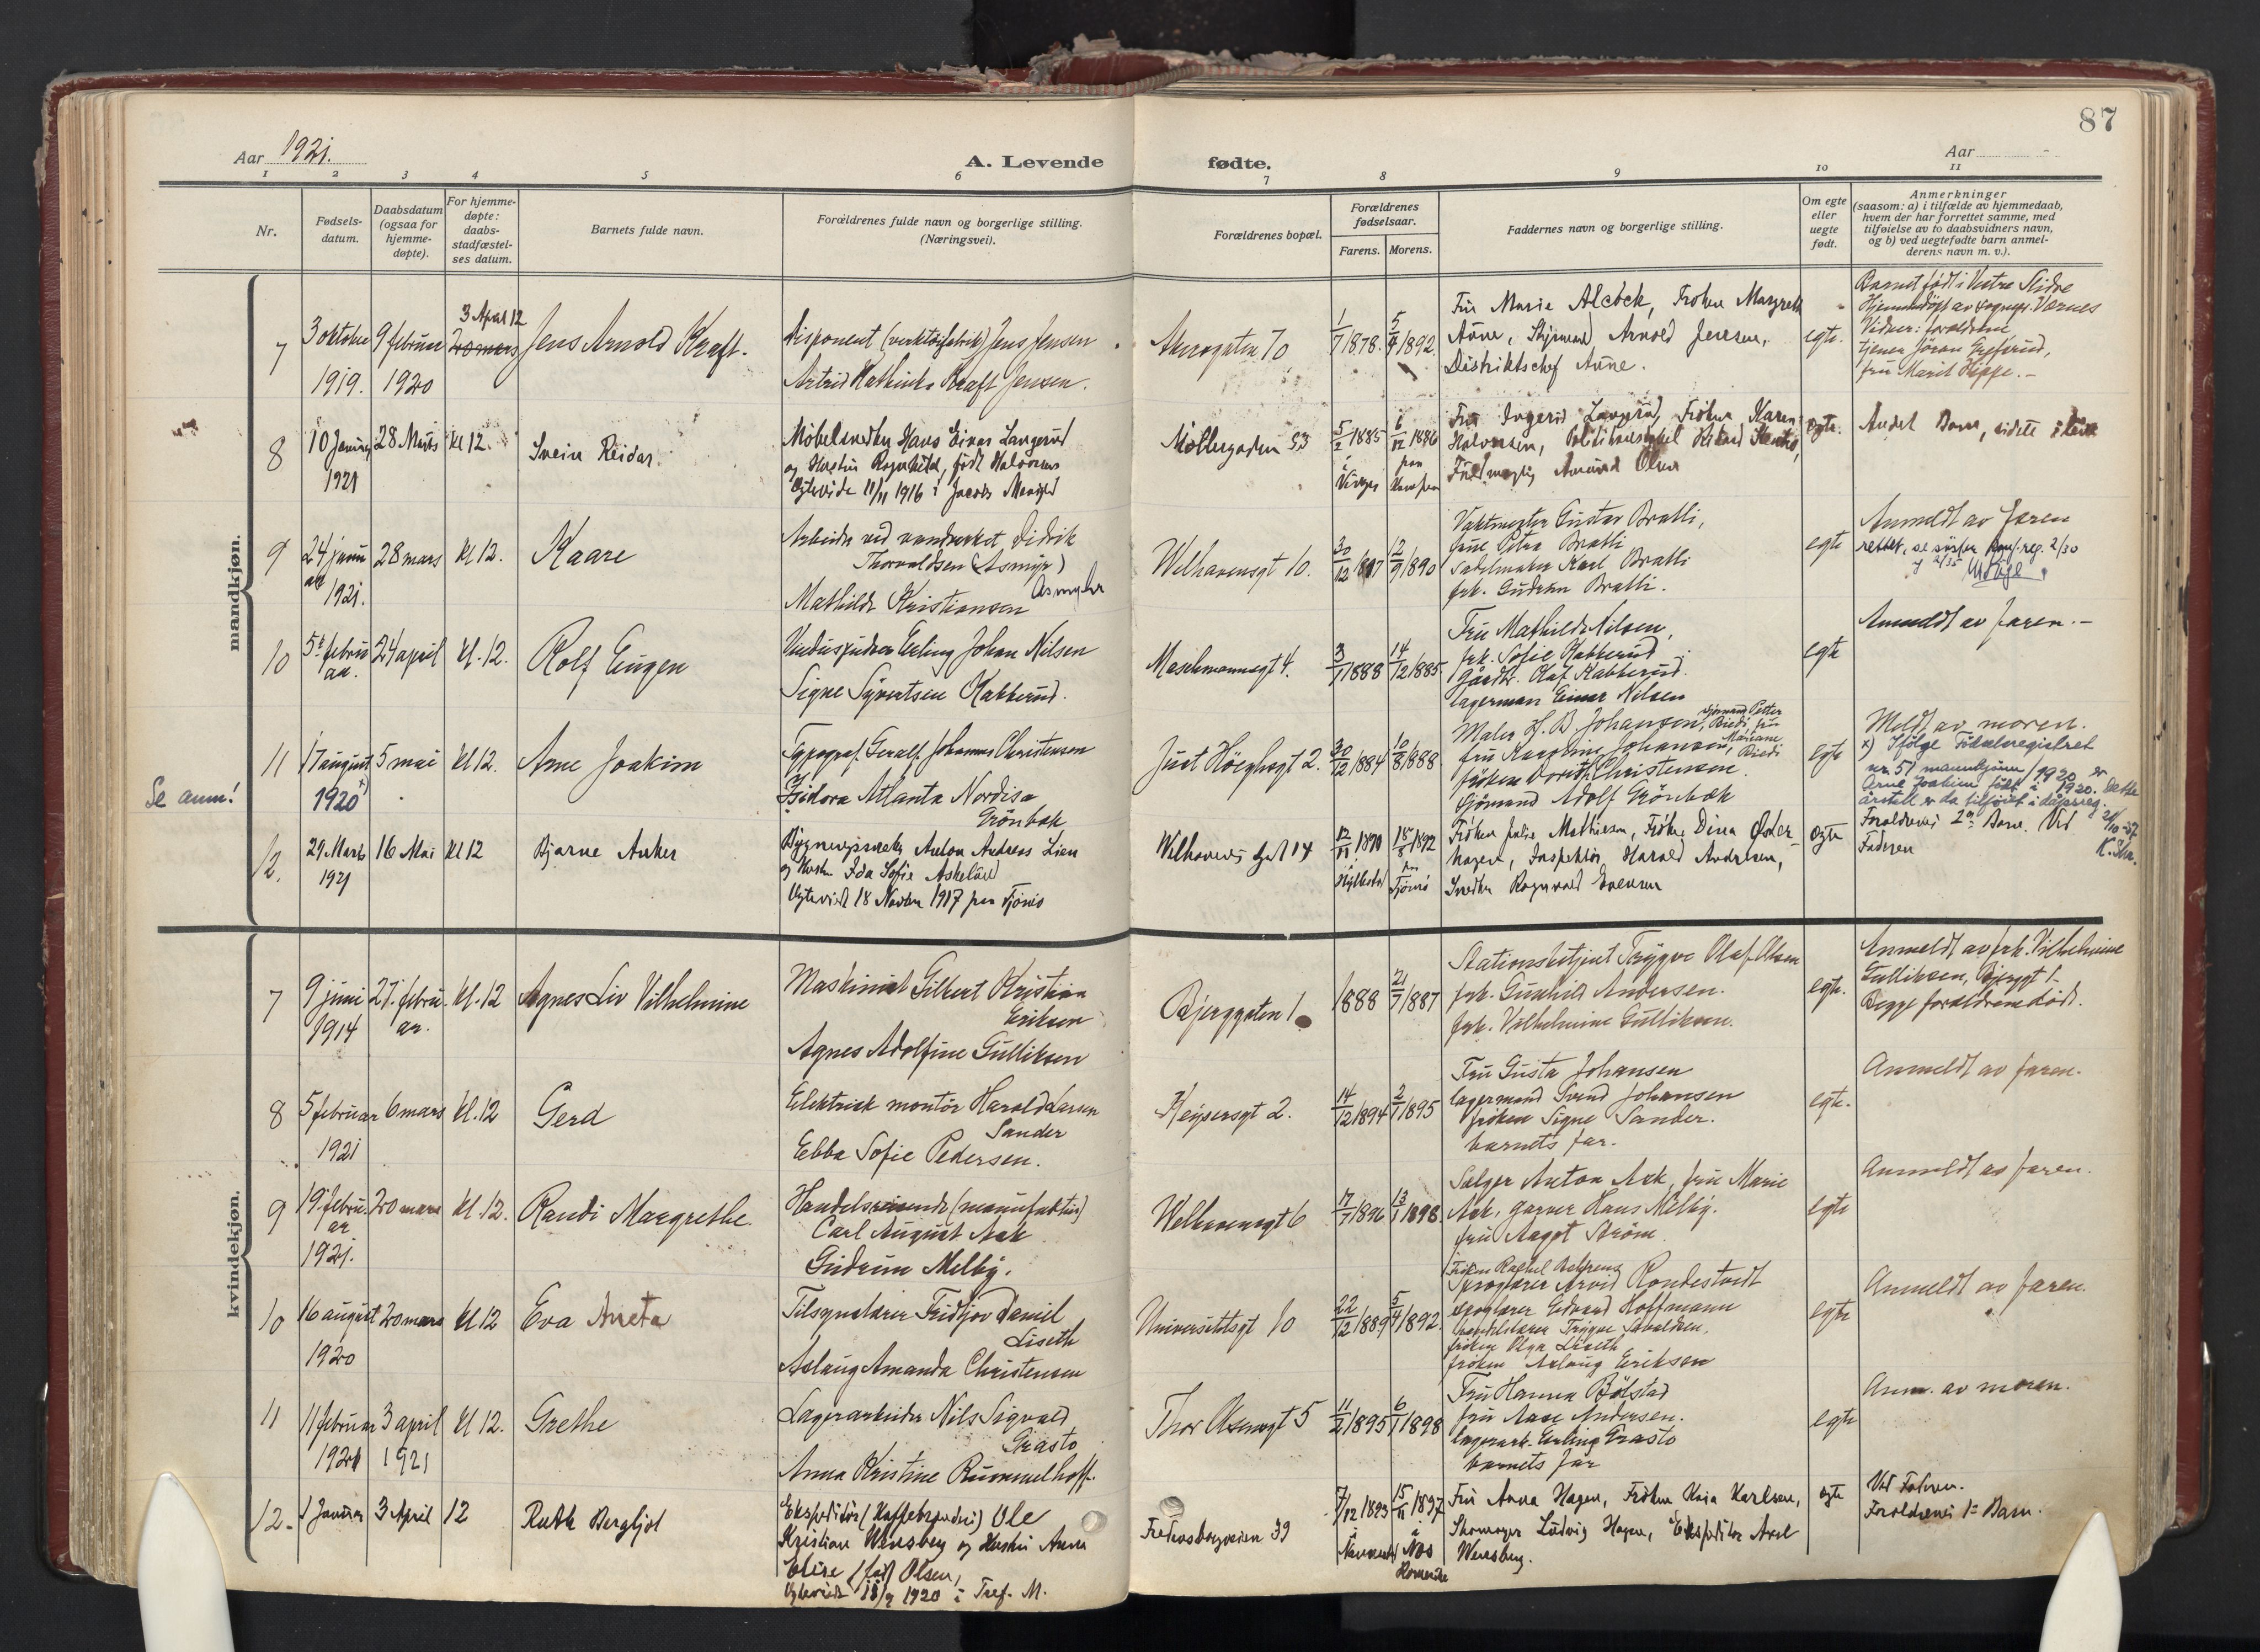 87
Aar 1921.
A. Levende fødte.
Aar
1 2 3 4 5 6 7 8 9 10 11
Nr.
Fødsels-
datum.
Daabsdatum
(ogsaa for
hjemme-
døpte).
For hjemme-
døpte:
daabs-
stadfæstel-
ses datum.
Barnets fulde navn.
Forældrenes fulde navn og borgerlige stilling.
(Næringsvei).
Forældrenes bopæl.
Forældrenes
fødselsaar.
Farens. Morens.
Faddernes navn og borgerlige stilling.
Om egte
eller
uegte
født.
Anmerkninger
(saasom: a) i tilfælde av hjemmedaab,
hvem der har forrettet samme, med
tilføielse av to daabsvidners navn,
og b) ved uegtefødte barn anmel-
derens navn m. v.).
mandkjøn.
7
3 oktober
1919.
9 februar
1920
3 April 12
20 mars
Jens Arnold Kraft.
Disponent (verktøifabrik) Jens Jensen
Astrid Kraft Jensen.
Akersgaten 70
1/7 1878.
5/4 1892.
Fru Marie Alcock, Frøken Margreth
Aune, Arnold Jensen,
Distriktschef Aune.
egte.
Barnet født i Vestre Slidre
Hjemmedøpt av sognepr. Værnes
Vidner: forældrene
fru Marit
8
10 Januar
1921
28 Marts
kl 12.
Svein Reidar.
Møbelsnedker Hans Einar Langerud
og Hustru Ragnhild, født Halvorsen
Egteviede 11/11 1916 i Jacobs Menighed
Møllergaden 33
5/2 1885
6/12 1886
Fru Ingerid Langerud, Frøken Karen
Halvorsen,
Fuldmægtig Amund Olsen
egte.
Andet Barn, sidste i live
9
24 janu
ar
1921.
28 mars
kl 12.
Kaare
Arbeider ved vandverket Didrik
Thorvaldsen (Asmyr)
Asmyhr
Mathilde Kristiansen
Welhavensgt 10.
30/12 1887
12/9 1890
Vaktmester Gustav Bratli,
frue Petra Bratli
Sadelmaker Karl Bratli
frk. Gudrun Bratli.
egte
Anmeldt av faren
rettet, se 2/30
10
5te febru
ar.
24 april
kl. 12.
Rolf Eugen
Vinduspudser Erling Johan Nilsen
Signe Syvertsen Kabberud.
Maschmannsgt 4.
3/1 1888
14/12 1885
Fru Mathilde Nilsen,
frk. Sofie Kabberud
Gårdbr. Olaf Kabberud.
lagermann Einar Nilsen
egte
Anmeldt av faren.-
Se anm!
11
17 august
1920 x)
5 mai
kl 12.
Arne Joakim
Typograf. Geralf Johannes Christensen
Isidora Atlanta Nordisa
Grönbæk
Just Höeghsgt 2.
30/12 1884
10/8 1888
Maler H. B. Johansen, sjömand Petter
fru Johansen, Mariane
fröken Dorith Christensen.
Sjömand Adolf Grönbæk
egte
Meldt av moren.
x) Ifølge Fødselsregistret
nr. 51 mannkjønn/1920 er
Arne Joakim født i 1920. Dette
årstall er da tilføiet i dåpsreg.
21/10-37
K. Skr.
12.
29. Marts
1921
16 Mai
kl 12
Bjarne Anker
Anton Andreas Lien
og Hustru Ida Sofie Askeland
Egteviet 18 Novbr 1917 paa Tjømø
Welhavens gt 14
12/11 1890
15/8 1892
paa
Tjømø
Frøken Julie Mathisen, Frøken Dina
hagen, Inspektør Harald Andersen,
Snedker Ragnvald Evensen
Egte
Forældrenes 2det Barn. Ved
Faderen
kvindekjøn.
7
9 juni
1914
27. febru
ar.
kl. 12
Agnes Liv Vilhelmine
Maskinist Gilbert Kristian
Eriksen
Agnes Adolfine Gulliksen
Bjerggaten 1
1888
21/7 1887
Stationsbetjent Trygve Olaf Olsen
frk. Gunhild Andersen.
frk. Vilhelmine Gulliksen.
egte.
Anmeldt av frk. Vilhelmine
Gulliksen, Bjerggt 1.
Begge forældrene død.
8
5 februar
1921
6 mars
kl. 12
Gerd
Elektrisk montör Harald Larsen
Sander
Ebba Sofie Pedersen.
Keysersgt 2.
14/12 1894
2/1 1895
Fru Gusta Johansen
lagermand Svend Johansen
fröken Signe Sander.
barnets far.
egte.
Anmeldt av faren.
9
19. febru
ar
1921.
20 mars
kl. 12.
Randi Margrethe.
Handelsreisende (manufaktur)
Carl August Aak
Gudrun Melby.
Welhavensgt 6
17/7 1896
13/1 1898
Sælger Anton Aak, fru Marie
Aak, garver Hans Melby.
fru Aagot Strøm
egte
Anmeldt av faren.
10
16 august
1920
20 mars
kl 12
Eva Aneta
Tilsynslærer Fridtjov Daniel
Liseth
Aslaug Amanda Christensen
Universitetsgt 10
22/12 1889
5/4 1892
Frøken Rachel
Sproglærer Arvid Rondestvedt
sproglærer Edvard Hoffmann
handelslærer Trygve
frøken Olga Liseth
frøken Aslaug Eriksen
egte
Anmeldt av faren.
11
11 februar
1921
3 april
1921
kl 12.
Grethe
Lagerarbeider Nils Sigvald
Grasto
Anna Kristine Rummelhoff.
Thor Olsensgt 5
11/2 1895
6/1 1898
Fru Hanna Bølstad
fru Aase Andersen.
lagerarb. Erling Grasto
barnets far
egte
Anm. av moren.
12.
1 Januar
3 April
12
Ruth Bergljot
Ekspeditør (Kaffebrænderi) Ole
Kristian Wensberg og Hustru Anna
Elise (født) Olsen,
Egteviede 18/9 1920 i Tref. M.
Fredensborgveien 39
7/12 1893
15/11 1897
i
Nes
Romerike
Fru Anna Hagen, Frøken Kaia Karlsen,
Skomager Ludvig Hagen, Ekspeditør Axel
Wensberg.
egte
Ved Faderen.
Forældrenes 1ste Barn.